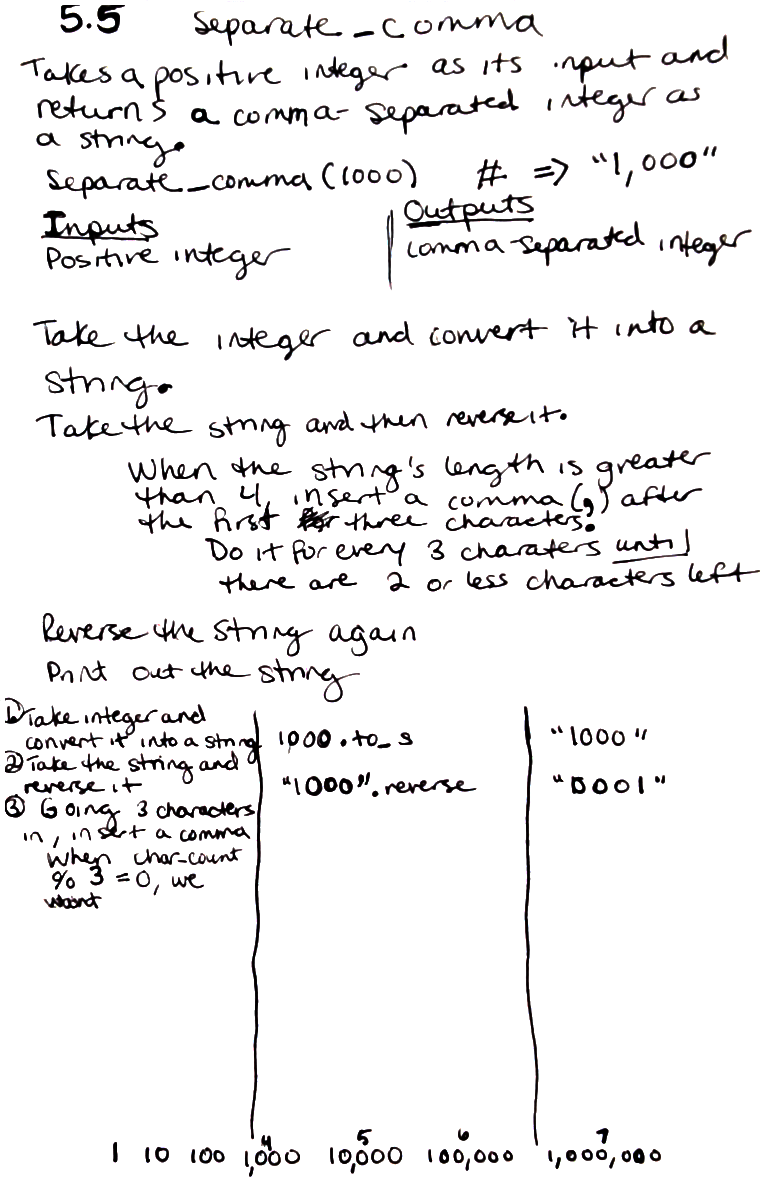 5.5 Separate_comma
Takes a positive integer as its input and
returns a comma-separated integer as
a string.
Separate_comma (1000) # => "1,000"
Inputs
Positive integer
Outputs
comma-separated integer
Take the integer and convert it into a
string.
Take the string and then reverse it.
When the string's length is greater
than 4, insert a comma (,) after
the first three characters.
Do it for every 3 charaters until
there are 2 or less characters left
Reverse the string again
Print out the string
① Take integer and
convert it into a string
1000.to_s
"1000"
② Take the string and
reverse it
"1000".reverse
"0001"
③ Going 3 characters
in, insert a comma
when char-count
% 3 = 0, we
want
4 5 6 7
1 10 100 1,000 10,000 100,000 1,000,000